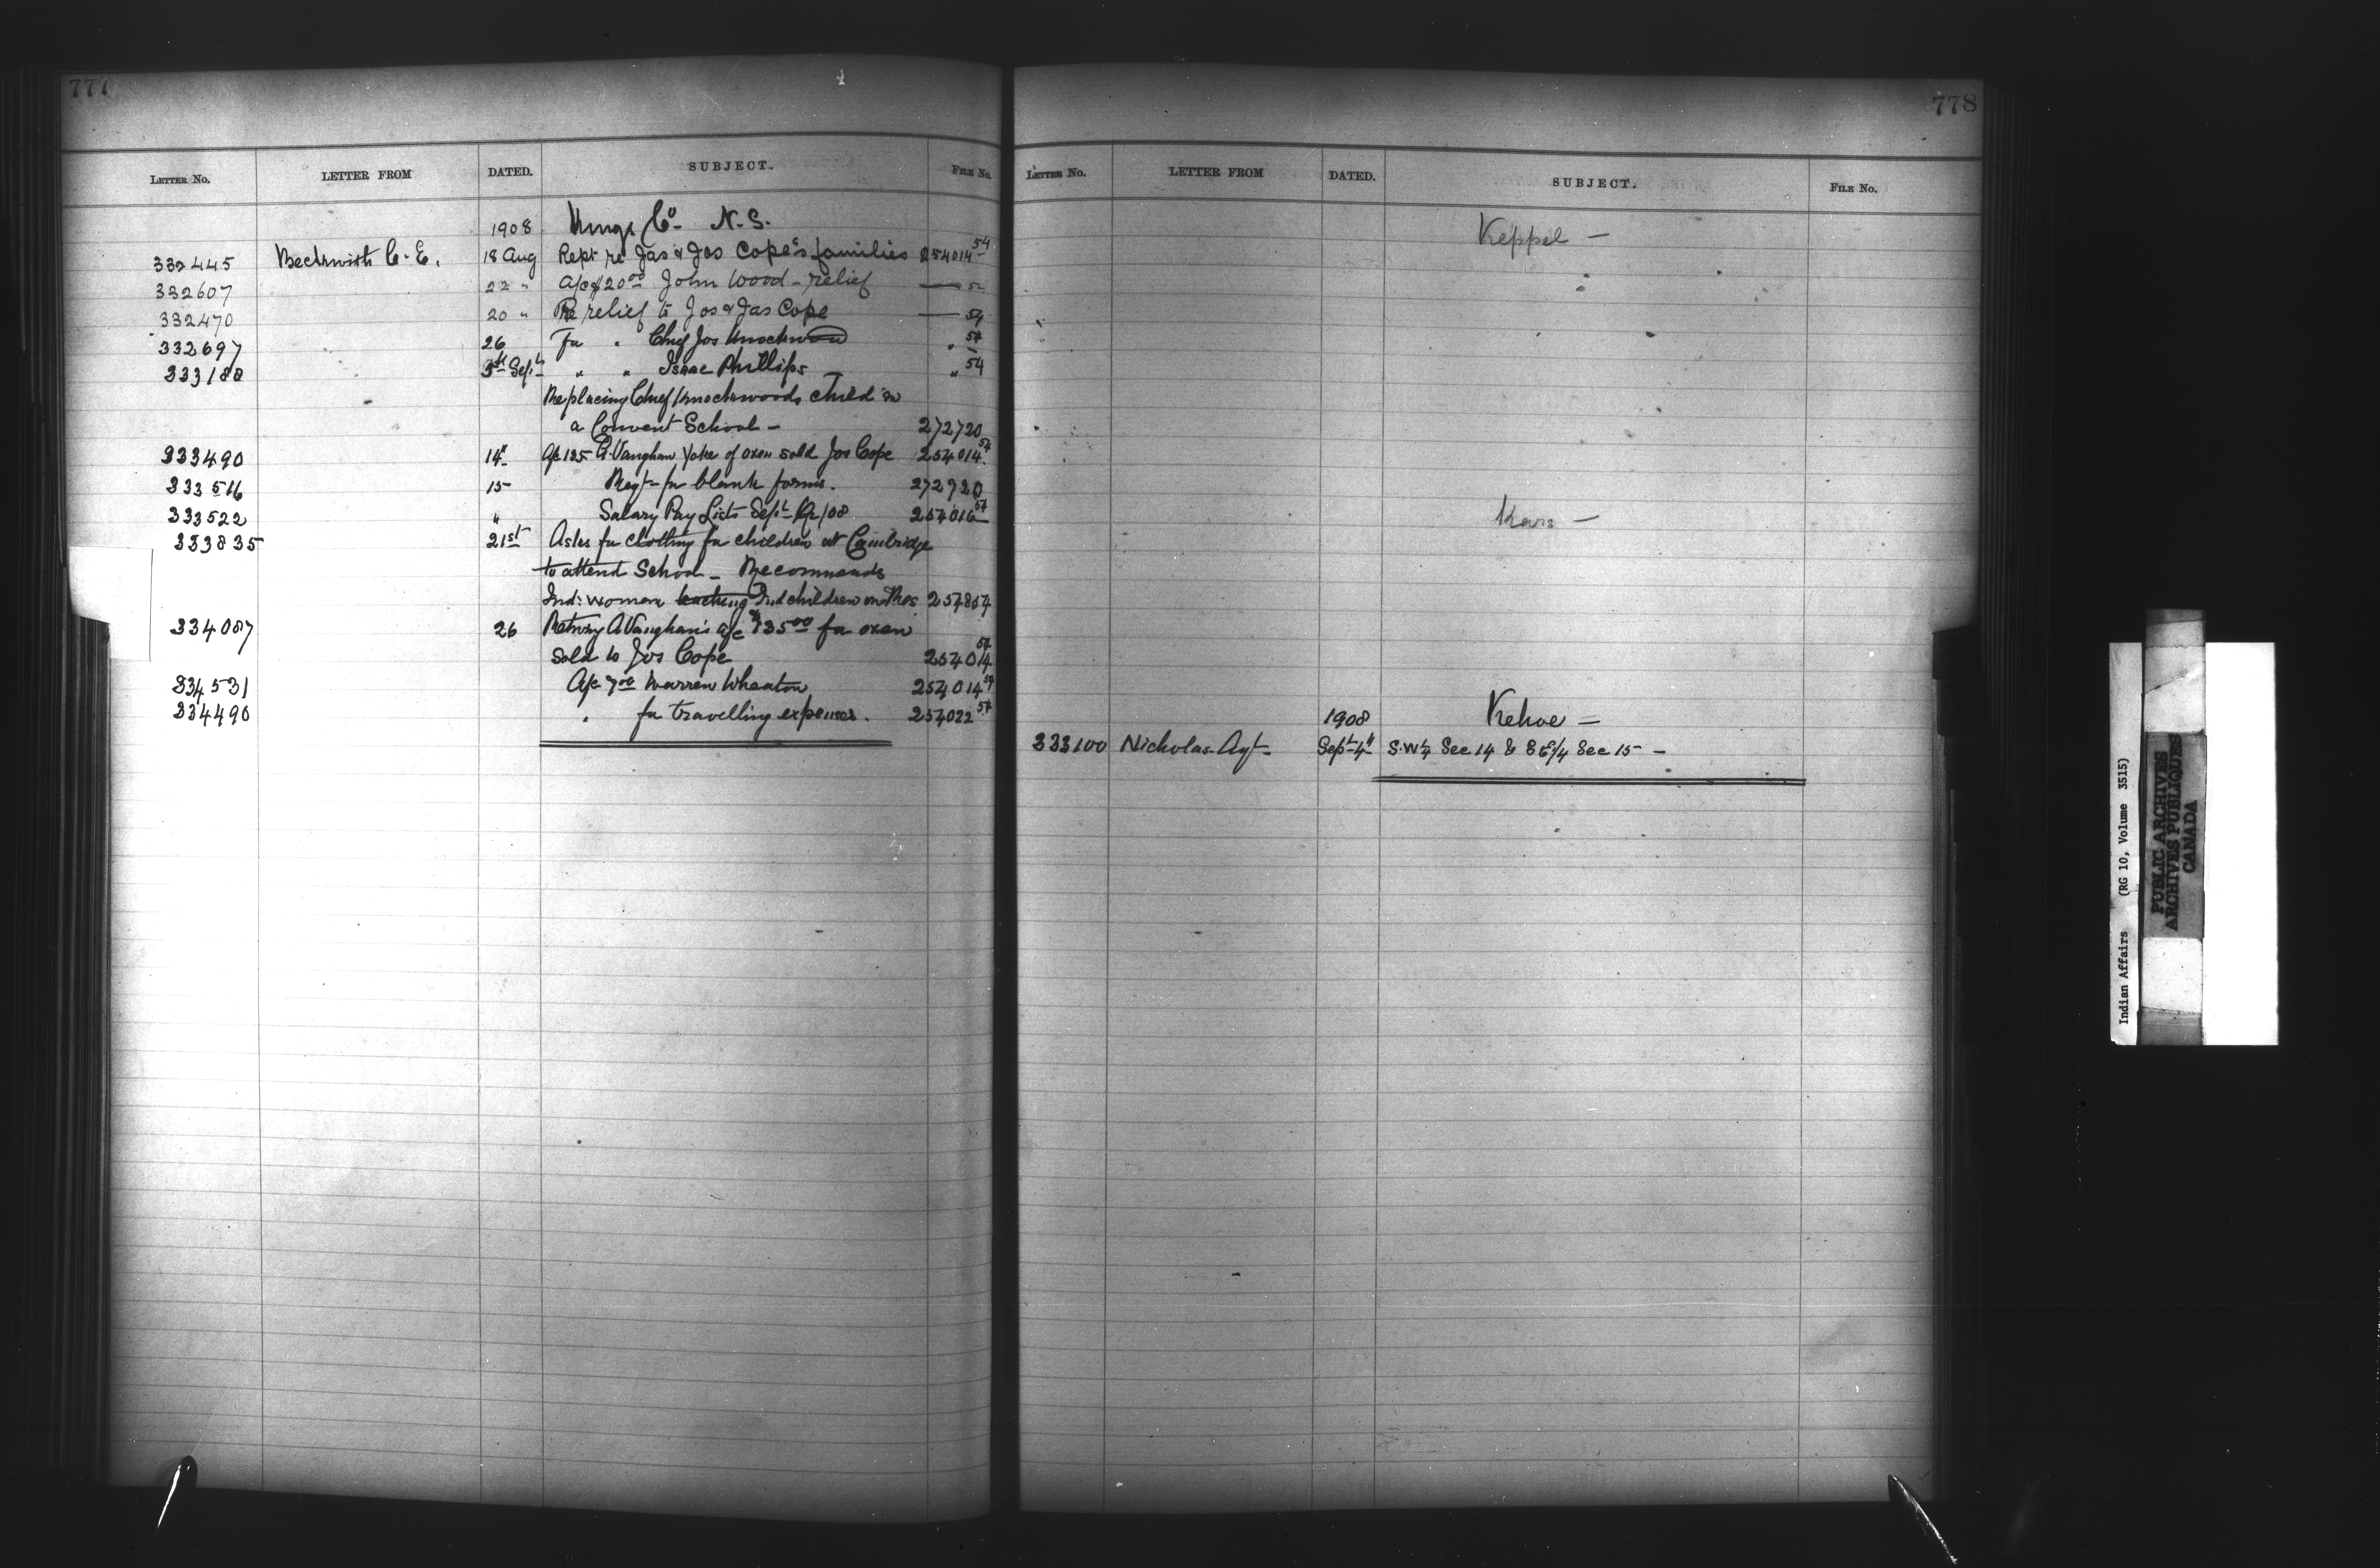 777
LETTER NO. LETTER FROM DATED. SUBJECT. FILE NO.
1908 Kings Co. N.S.
332445 Beckwith C. E. 18 Aug Rept re Jas & Jos Cope's families 254014 54
332607 22 " a/c $20.00 John Wood - relief — 54
332470 20 " Re relief to Jos & Jas Cope — 54
332697 26 For " Chief Jos Knockwood " 54
333188 3rd Sept " " Isaac Phillips " 54
Replacing Chief Knockwoods child in
a Convent School - 272720
333490 14" A/c 135 A. Vaughan Yoke of oxen sold Jos Cope 254014 54
333516 15 Reqt for blank forms. 272720
333522 " Salary Pay Lists Sept Qr/08 254016 54
333835 21st Asks for clothing for children at Cambridge
to attend School - Recommends
Ind: women teaching Ind children on Res 254854
334087 26 Returng A. Vaughan's a/c $135.00 for oxen
sold to Jos Cope 254014 54
334531 A/c 7.00 Warren Wheaton 254014 54
334490 " for travelling expenses. 254022 54
778
LETTER NO. LETTER FROM DATED. SUBJECT. FILE NO.
Keppel —
Kars —
1908 Kehoe —
333100 Nicholas Agt Sept 4" S.W¼ Sec 14 & SE¼ Sec 15 —
Indian Affairs (RG 10, Volume 3515)
PUBLIC ARCHIVES
ARCHIVES PUBLIQUES
CANADA